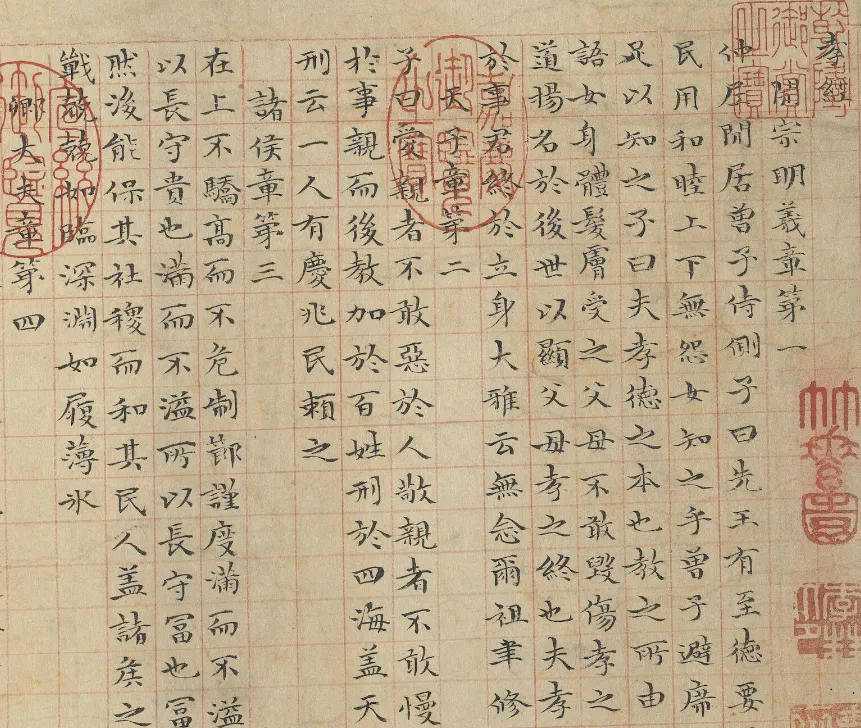 孝經
開宗明義章第一
仲尼閒居曾子侍側子曰先王有至德要
民用和睦上下無怨女知之乎曾子避席
足以知之子曰夫孝德之本也教之所由
語女身體髮膚受之父母不敢毀傷孝之
道揚名於後世以顯父母孝之終也夫孝
於事君終於立身大雅云無念爾祖聿修
天子章第二
子曰愛親者不敢惡於人敬親者不敢慢
於事親而後教加於百姓刑於四海蓋天
刑云一人有慶兆民賴之
諸侯章第三
在上不驕高而不危制節謹度滿而不溢
以長守貴也滿而不溢所以長守冨也冨
然後能保其社稷而和其民人蓋諸侯之
戰兢兢如臨深淵如履薄氷
卿大夫章第四